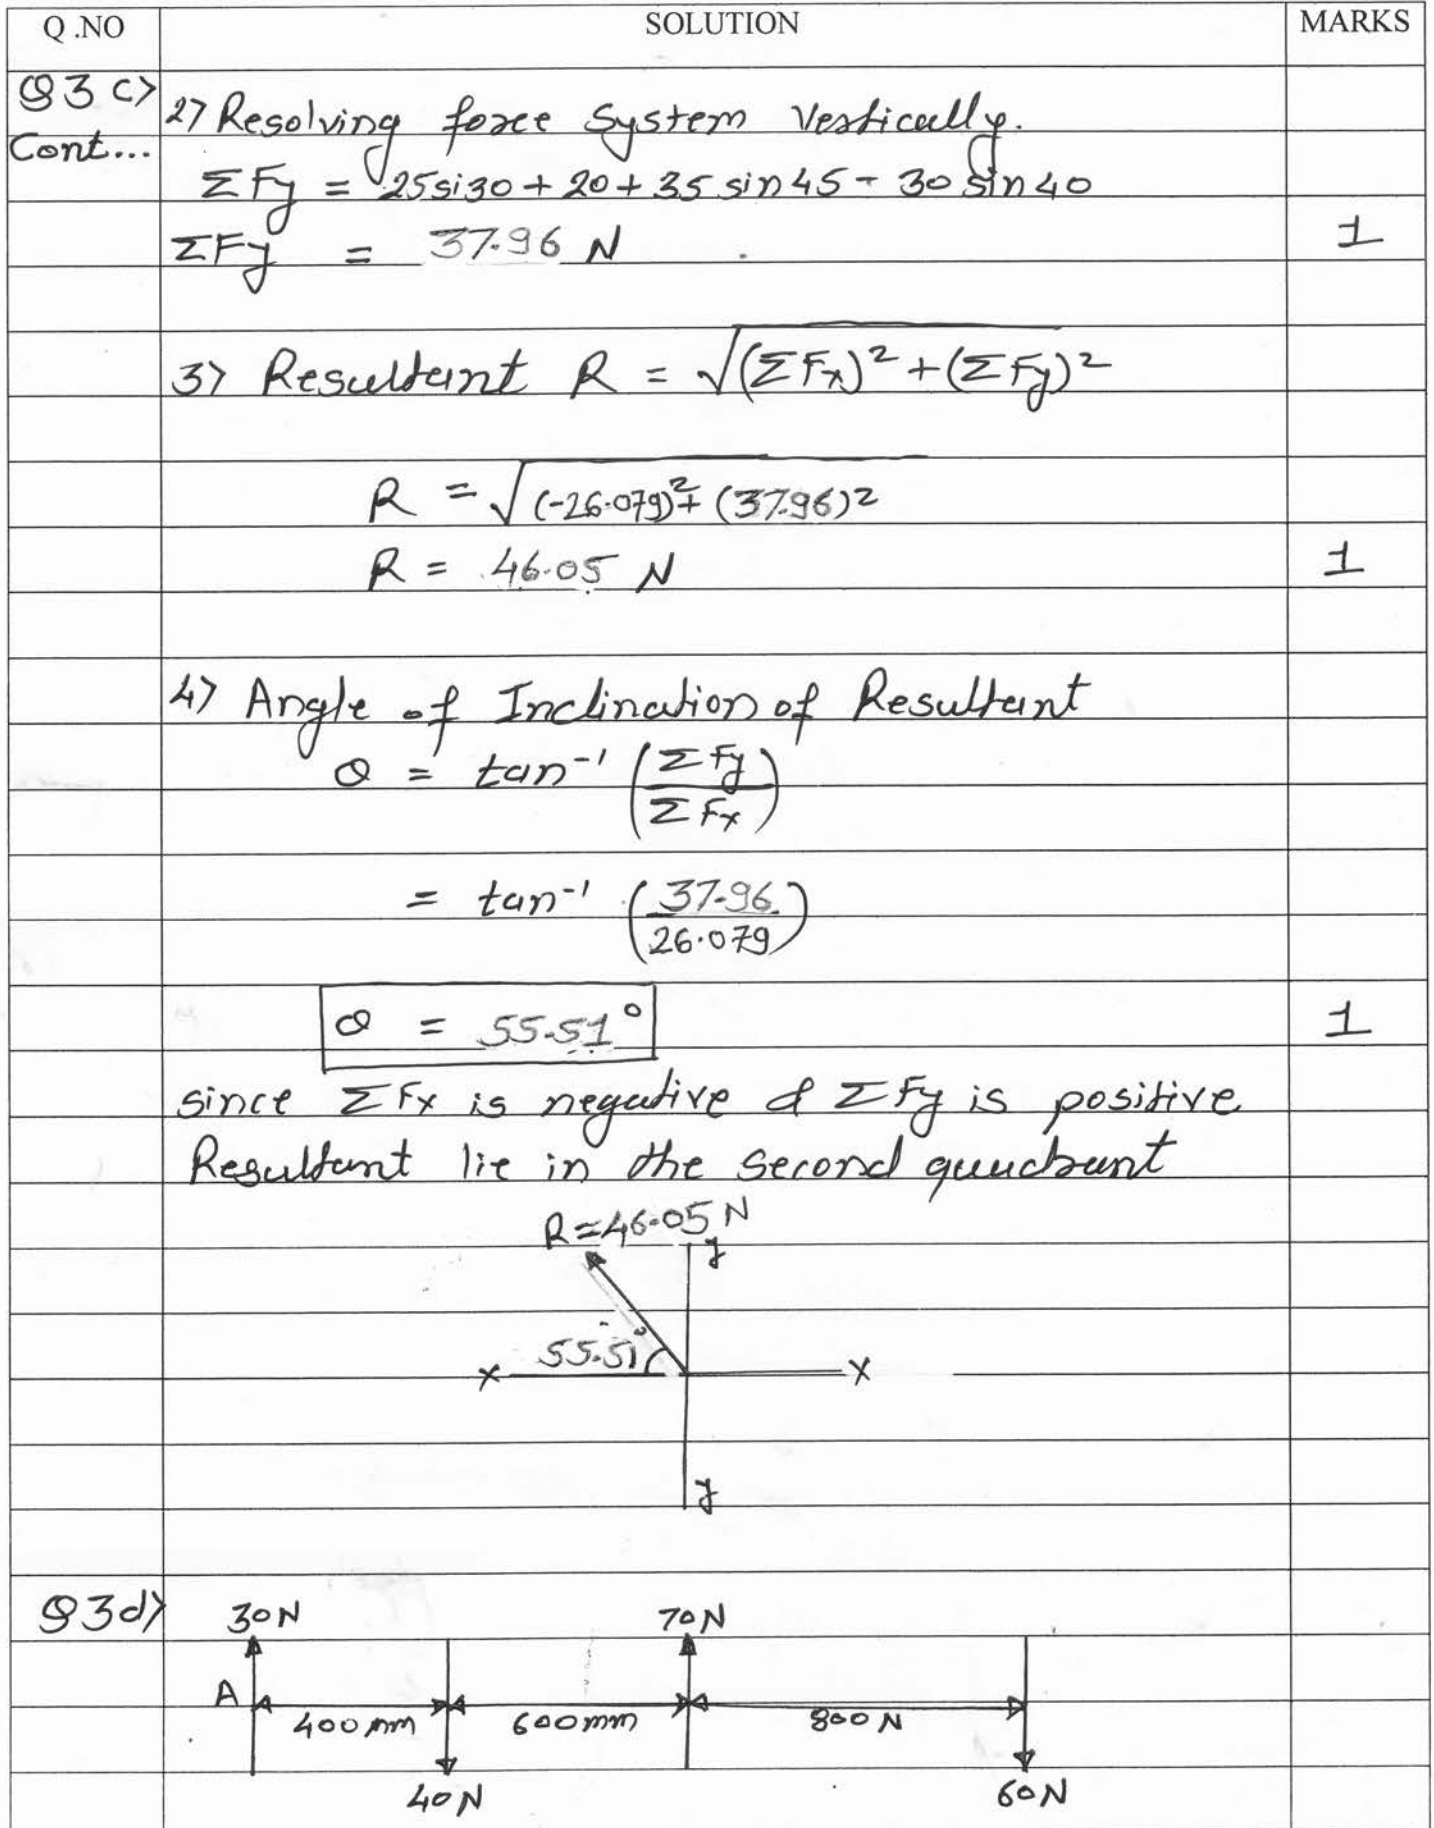 Q.NO SOLUTION MARKS
Q3 c> 2> Resolving force System Vertically.
Cont...
ΣFy = 25si30 + 20 + 35 sin 45 - 30 sin 40
ΣFy = 37.96 N 1
3> Resultant R = √(ΣFx)² + (ΣFy)²
R = √(-26.079)² + (37.96)²
R = 46.05 N 1
4> Angle of Inclination of Resultant
θ = tan⁻¹ (ΣFy / ΣFx)
= tan⁻¹ (37.96 / 26.079)
θ = 55.51° 1
since ΣFx is negative & ΣFy is positive
Resultant lie in the second quadrant
R=46.05 N
y
55.51°
x x
y
Q3d> 30N 70N
A
400mm 600mm 800N
40N 60N